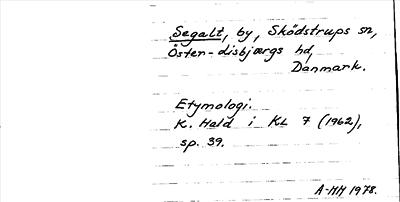 Segalt, by, Sködstrups sn,
Öster-disbjærgs hd,
Danmark.
Etymologi.
K. Hald i KL 7 (1962),
sp. 39.
A-MH 1978.